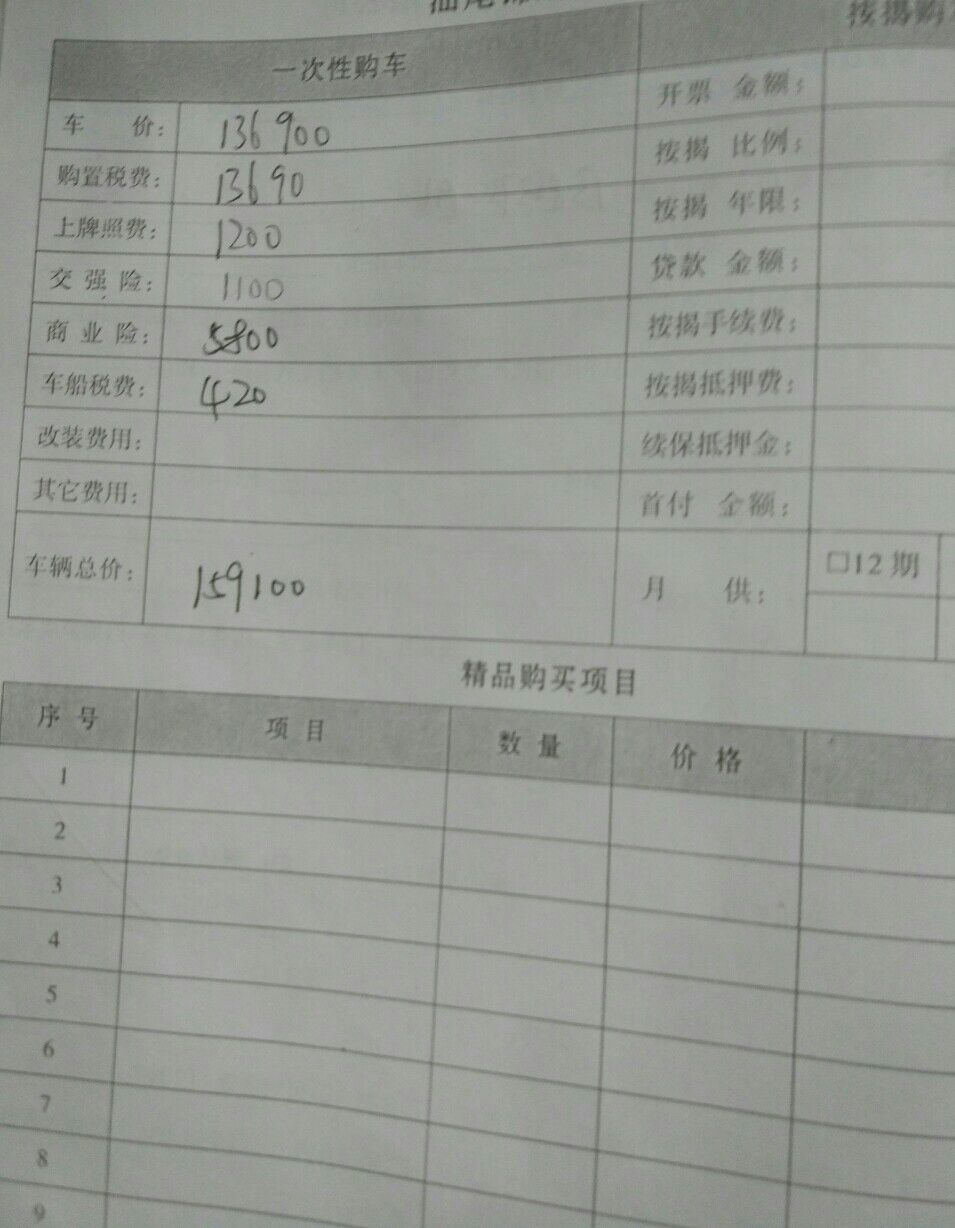 一次性购车
按揭购
车 价: 136900
开票 金额:
购置税费: 13690
按揭 比例:
上牌照费: 1200
按揭 年限:
交 强 险: 1100
贷款 金额:
商 业 险: 5800
按揭手续费:
车船税费: 420
按揭抵押费:
改装费用:
续保抵押金:
其它费用:
首付 金额:
车辆总价: 159100
月 供:
□12 期
精品购买项目
序 号 项 目 数 量 价 格
1
2
3
4
5
6
7
8
9